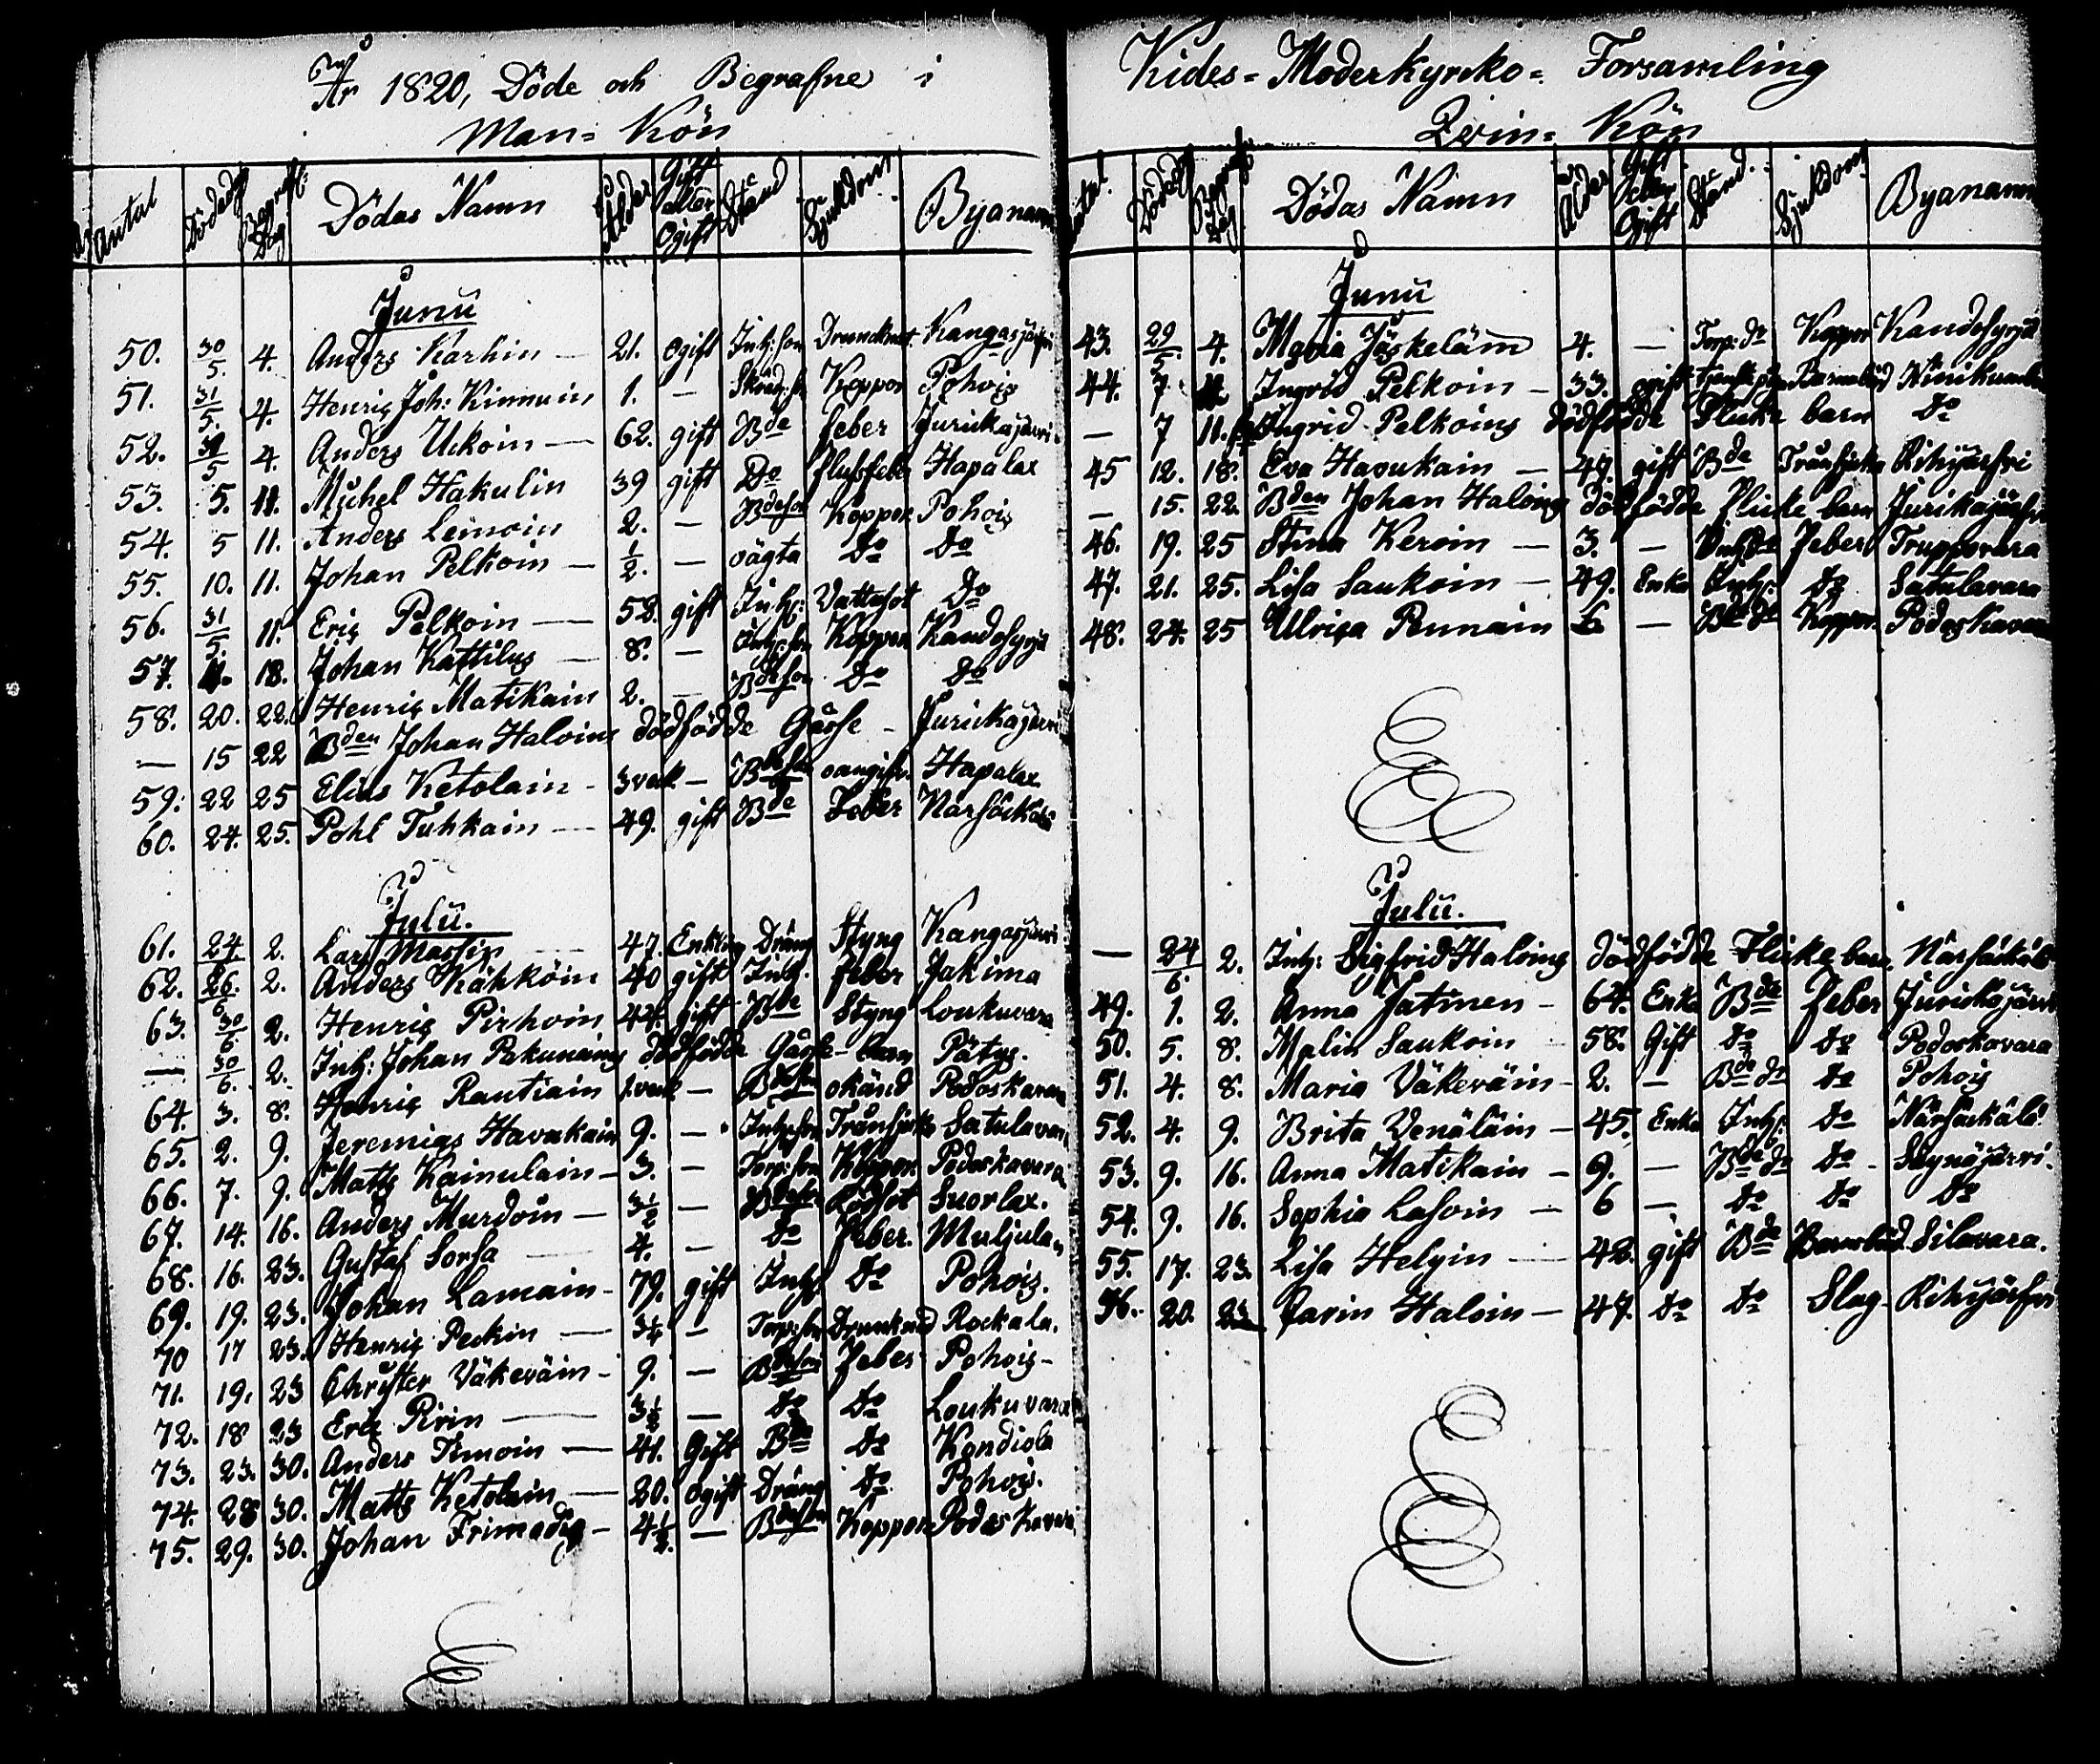 År 1820, Döde och Begrafne i
Man= Kön
Antal Dödedag Begrafn: Dag Dödas Namn Ålder Gift eller Ogift Stånd Sjukdom Byanamn
Junii
50. 30/5. 4. Anders Karhin — 21. Ogift Inh: son Drunknat Kangasjärfvi
51. 31/5. 4. Henric Joh: Kinnuin 1. — Koppor Pohois
52. 31/5 4. Anders Uckoin — 62. gift Bde feber Jurickajärvi
53. 5. 11. Michel Hakulin 39 gift Do flussfeber Hapalax
54. 5 11. Anders Lemoin 2. — Bdeson Koppor Pohois
55. 10. 11. Johan Pelkoin — 1/2. — oägta Do Do
56. 31/5. 11. Eric Pelkoin — 58. gift Inh: Vattusot Do
57. 18. Johan Kattilus — 8. — Inh: son Koppor Kandosyrjä
58. 20. 22. Henric Matikain 2. — Bdeson Do Do
— 15 22 Bden Johan Haloins dödfödde Gåsse - Jurickajärvi
59. 22 25 Elias Ketolain - 3 veck — Bdeson oangifv. Hapalax
60. 24. 25. Pohl Tukkain — 49. gift Bde Feber Närsäckälä
Julii.
61. 24 2. Lars Martin 47. Enkling Dräng Styng Kangasjärvi
62. 26./6 2. Anders Kähköin 40 gift Inh. feber Jakima
63. 30/6. 2. Henric Pirhoin 44. gift Bde Styng Loukuvara
— 30/6. 2. Inh: Johan Pakunains dödfödde Gåsse-barn Pätys.
64. 3. 8. Henric Rautiain 1. veck — Bdeson okänd Podoskavara
65. 2. 9. Jeremias Havukain 9. — Inh: son Tránsjuka Satulavara
66. 7. 9. Matts Kainulain - 3. — Torp: son Koppor Podoskavara
67. 14. 16. Anders Murdoin — 3 1/2 — Bdeson Suorlax.
68. 16. 23. Gustaf Sorsa 4. — Do Feber. Muljula
69. 19. 23. Johan Lamain - 79. gift Inh: Do Pohois.
70 17 23. Henric Peckin — 3 1/4 — Torp: son Drunknad Rockala.
71. 19. 23 Christer Väkeväin - 9. — Bdeson Feber Pohois -
72. 18 23 Eric Pirin — 3 1/2 — Do Do Loukuvara
73. 23. 30. Anders Timoin — 41. Gift Bde Do Kondiola
74. 28 30. Matts Ketolain — 20. Ogift Dräng Do Pohois.
75. 29. 30. Johan Frimodig - 4 1/2. — Bdeson Koppor Podoskavara
Kides = Moderkyrko = Forsamling
Qvin = Kön
Antal Dödedag Begrafn: Dag Dödas Namn Ålder Gift eller Ogift Stånd. Sjukdom Byanamn
Junii
43. 29/5. 4. Maria Jäskeläin 4. — Torp: dr Koppor Kandosyrjä
44. 7 Ingrid Pelkoin — 33. ogift Barnsbörd Niinikumbu
— 7 11. Ingrid Pelkoins dödfödde Flicke barn Do
45 12. 18. Eva Havukain — 47. gift Bde Tránsjuka Rihijärfvi
— 15. 22. Bden Johan Haloins dödfödde Flicke barn Jurikajärfvi
46. 19. 25 Stina Keroin — 3. — Inh: dr Feber Truppovara
47. 21. 25. Lisa Saukoin — 49. Enka Inh: Do Satulavara
48. 24. 25 Ulrica Pennain 6 — Bde dr Koppor Podoskavara
Julii.
— 24/6. 2. Inh: Sigfrid Haloins dödfödde Flicke barn. Närsäckälä
49. 1. 2. Anna Jatinen - 64. Enka Bde feber Jurickajärvi
50. 5. 8. Malin Saukoin 58. Gift Do Do Podoskavara
51. 4. 8. Maria Väkeväin - 2. — Bde dr Do Pohois
52. 4. 9. Brita Venäläin — 45. Enka Inh: Do Närsäckälä
53. 9. 16. Anna Matikain — 9. — Bde dr Do - Säynäjärvi.
54. 9. 16. Sophia Lasoin — 6 — Do Do Do
55. 17. 23. Lisa Helgin — 42. gift Bde Barnsbörd Silavara.
56. 20. 23 Carin Haloin — 47. Do Do Slag - Rihijärfvi